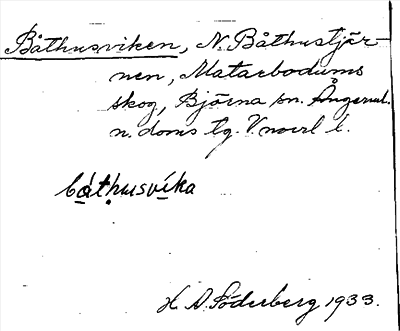 Båthusviken, N. Båthustjär-
nen, Matarbodums
skog, Björna sn. Ångerml.
n. doms. lg. V.norrl l.
båthusvika
H. A. Söderberg 1933.